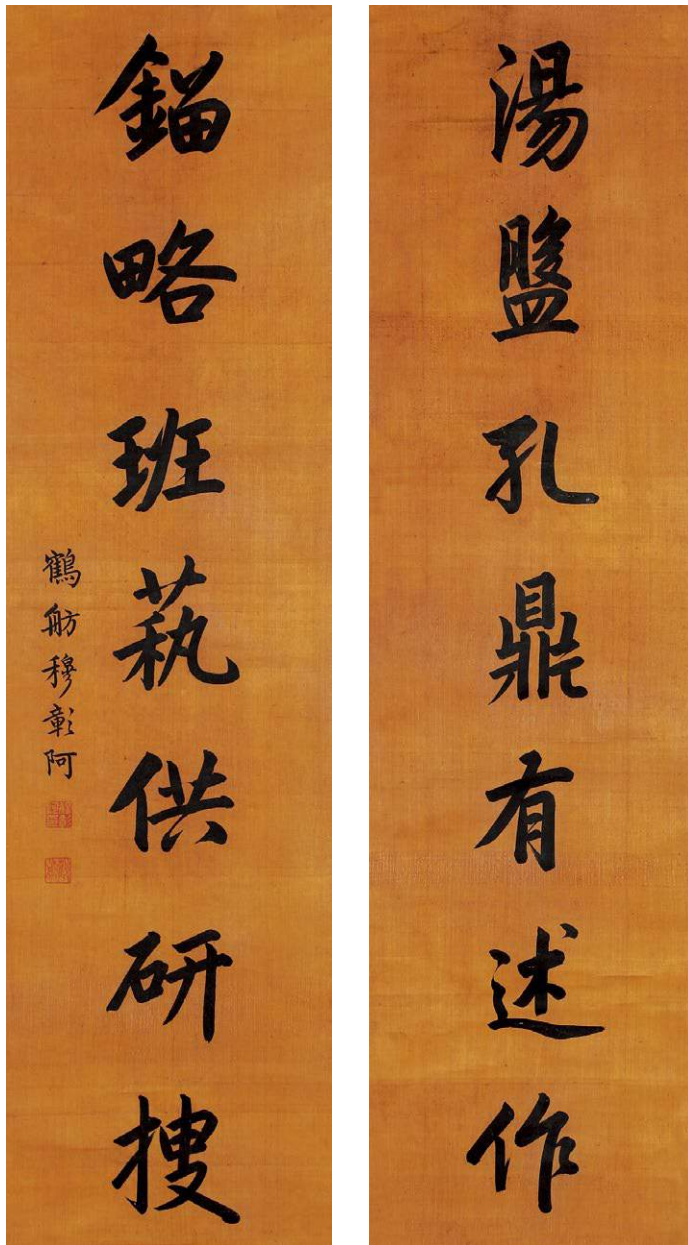 湯盤孔鼎有述作
鎦略班蓺供研搜
鶴舫穆彰阿